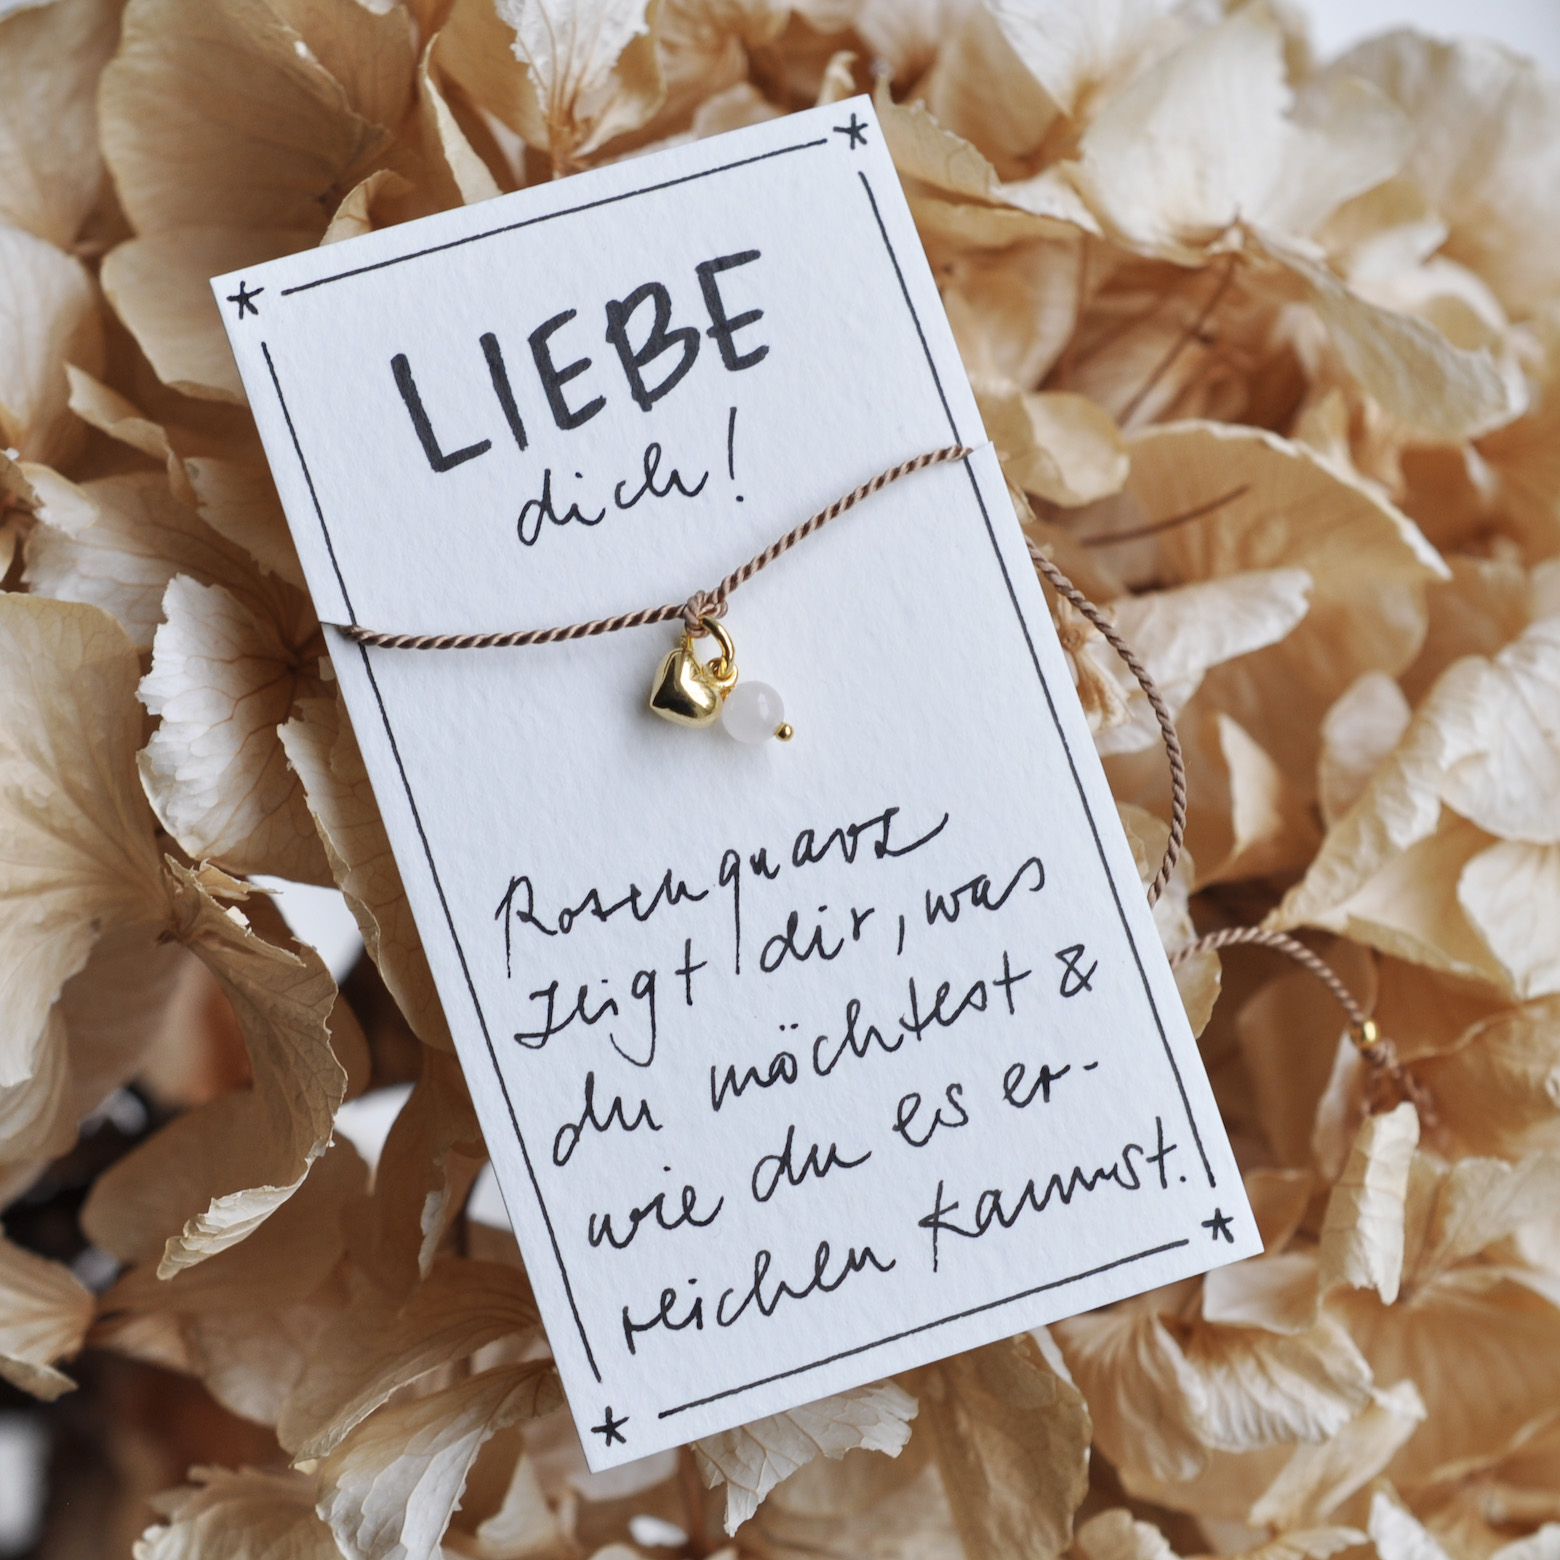 LIEBE
dich!
Rosenquarz
zeigt dir, was
du möchtest &
wie du es er-
reichen kannst.